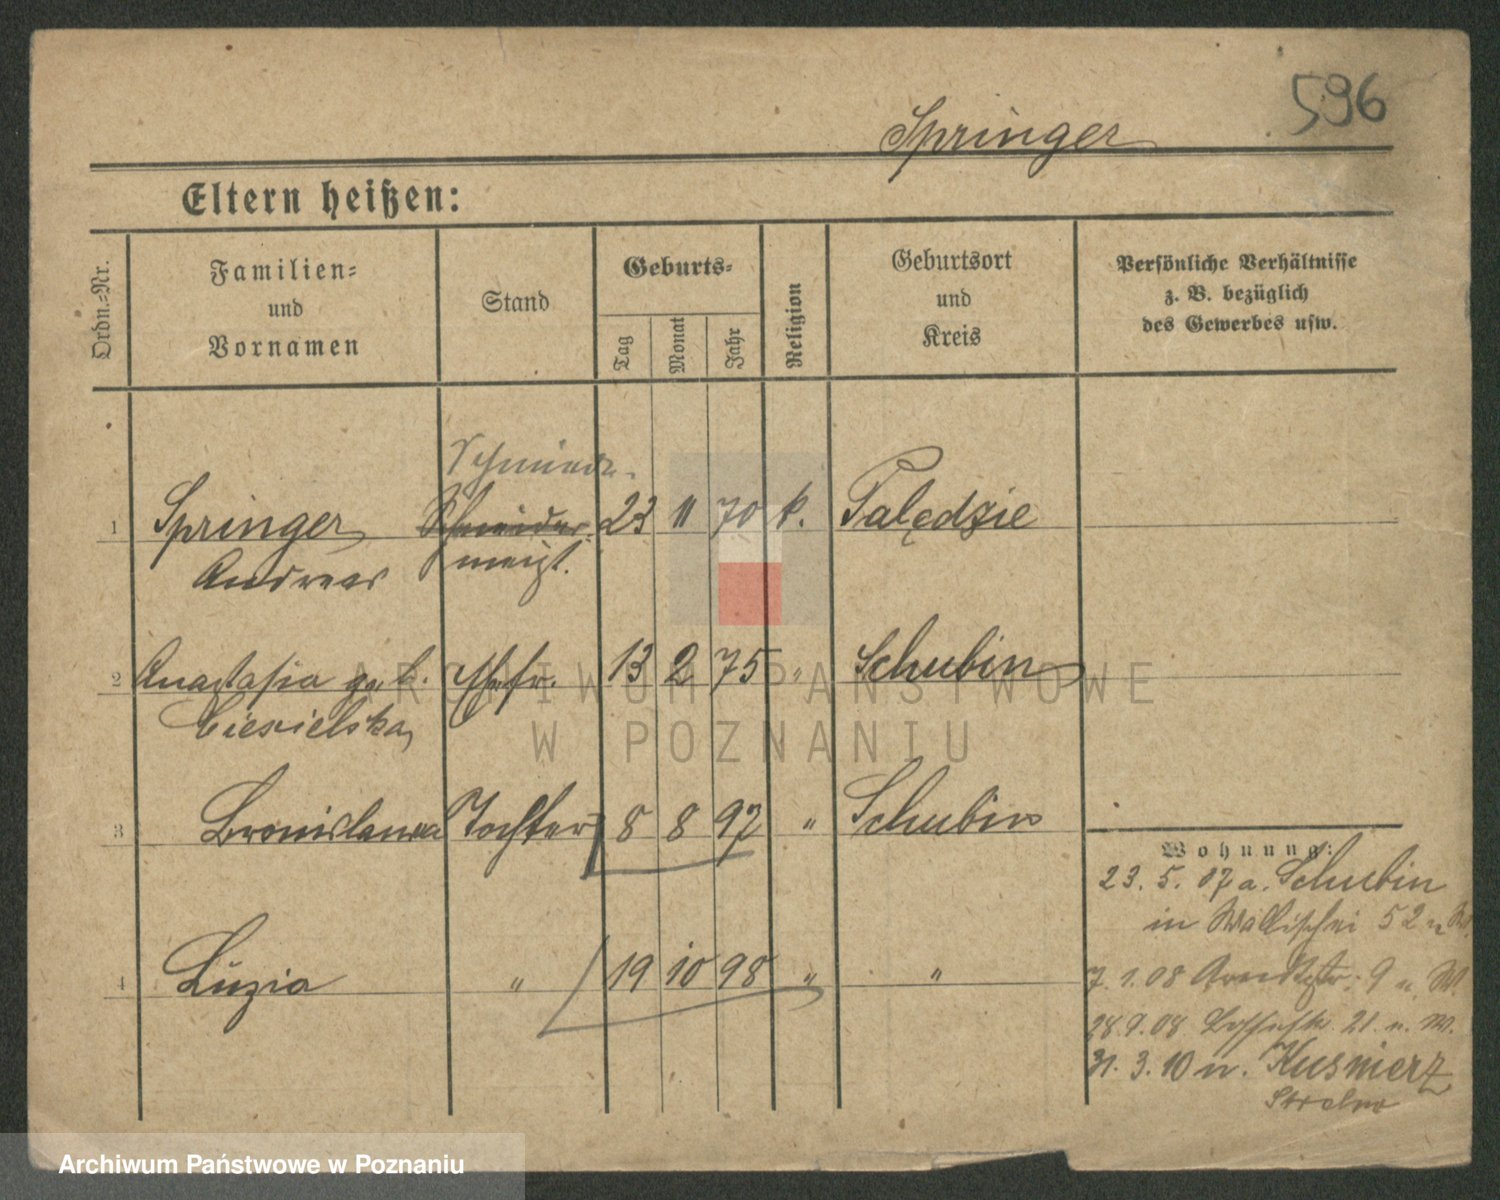 596
Springer
Eltern heißen:
Ordn.-Nr.
Familien- und Vornamen
Stand
Geburts-
Tag
Monat
Jahr
Religion
Geburtsort und Kreis
Persönliche Verhältnisse z. B. bezüglich des Gewerbes usw.
Schmiede-
1 Springer Schneider 23 11 70 k. Palędzie
Andreas
2 Anastasia geb. Ehefr. 13 2 75 " Schubin
Ciesielska
3 Bronislawa Tochter 8 8 97 " Schubin
4 Luzia " 19 10 98 " "
Wohnung:
23. 5. 07 a. Schubin
in Wallischei 52 n W.
7. 1. 08 9 n. W.
28. 9. 08 21. n. W.
31. 3. 10 n. Kusnierz
Strelno
ARCHIWUM PAŃSTWOWE
W POZNANIU
Archiwum Państwowe w Poznaniu